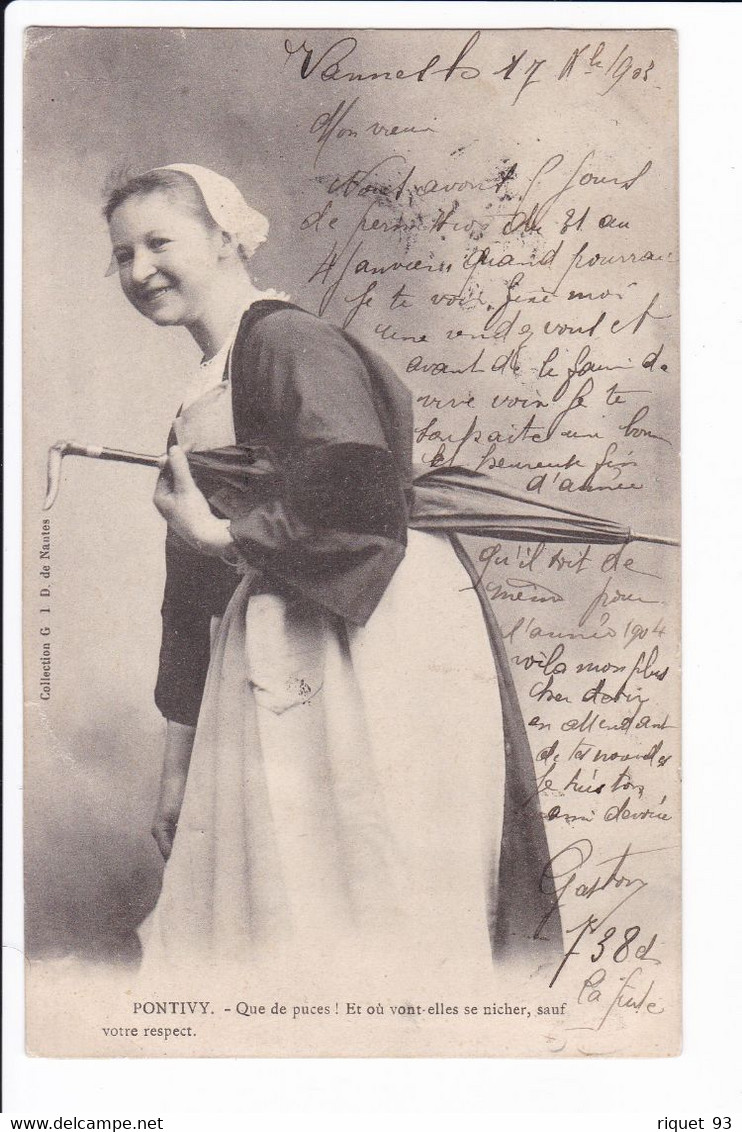 Vannes le 17 Xbre 1903
Mon vieux
Nous avons 5 jours
de permission du 31 au
4 Janvier quand pourrai
Je te voir, fixe moi
une rendez vous et
avant de le faire de
vive voix Je te
souhaite un bon
et heureuse fin
d'année
qu'il soit de
même pour
l'année 1904
voila mon plus
cher désir
en attendant
de tes nouvelles
Je suis ton
ami dévoué
Gaston
Collection G I D. de Nantes
PONTIVY. - Que de puces ! Et où vont-elles se nicher, sauf
votre respect.
riquet 93